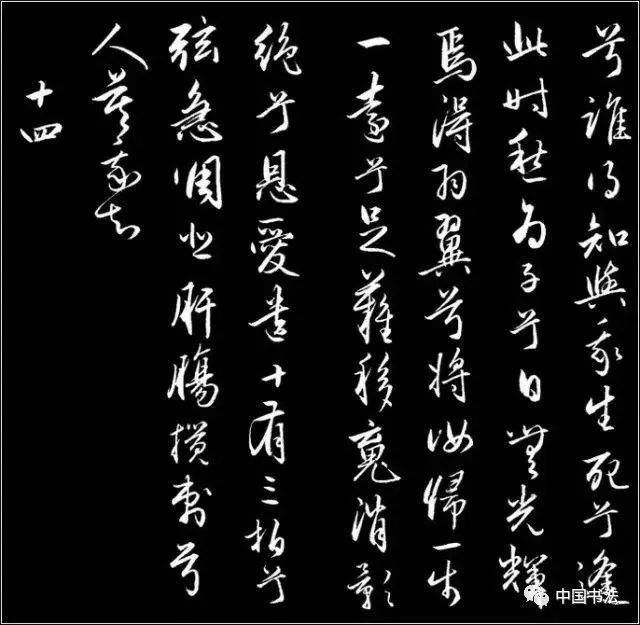 兮誰得知與我生死兮逢
此时愁為子兮日無光輝
焉得羽翼兮将汝歸一步
一遠兮足難移魂消影
絶兮恩愛遺十有三拍兮
弦急調悲肝腸攪刺兮
人莫我知
十四
中国书法